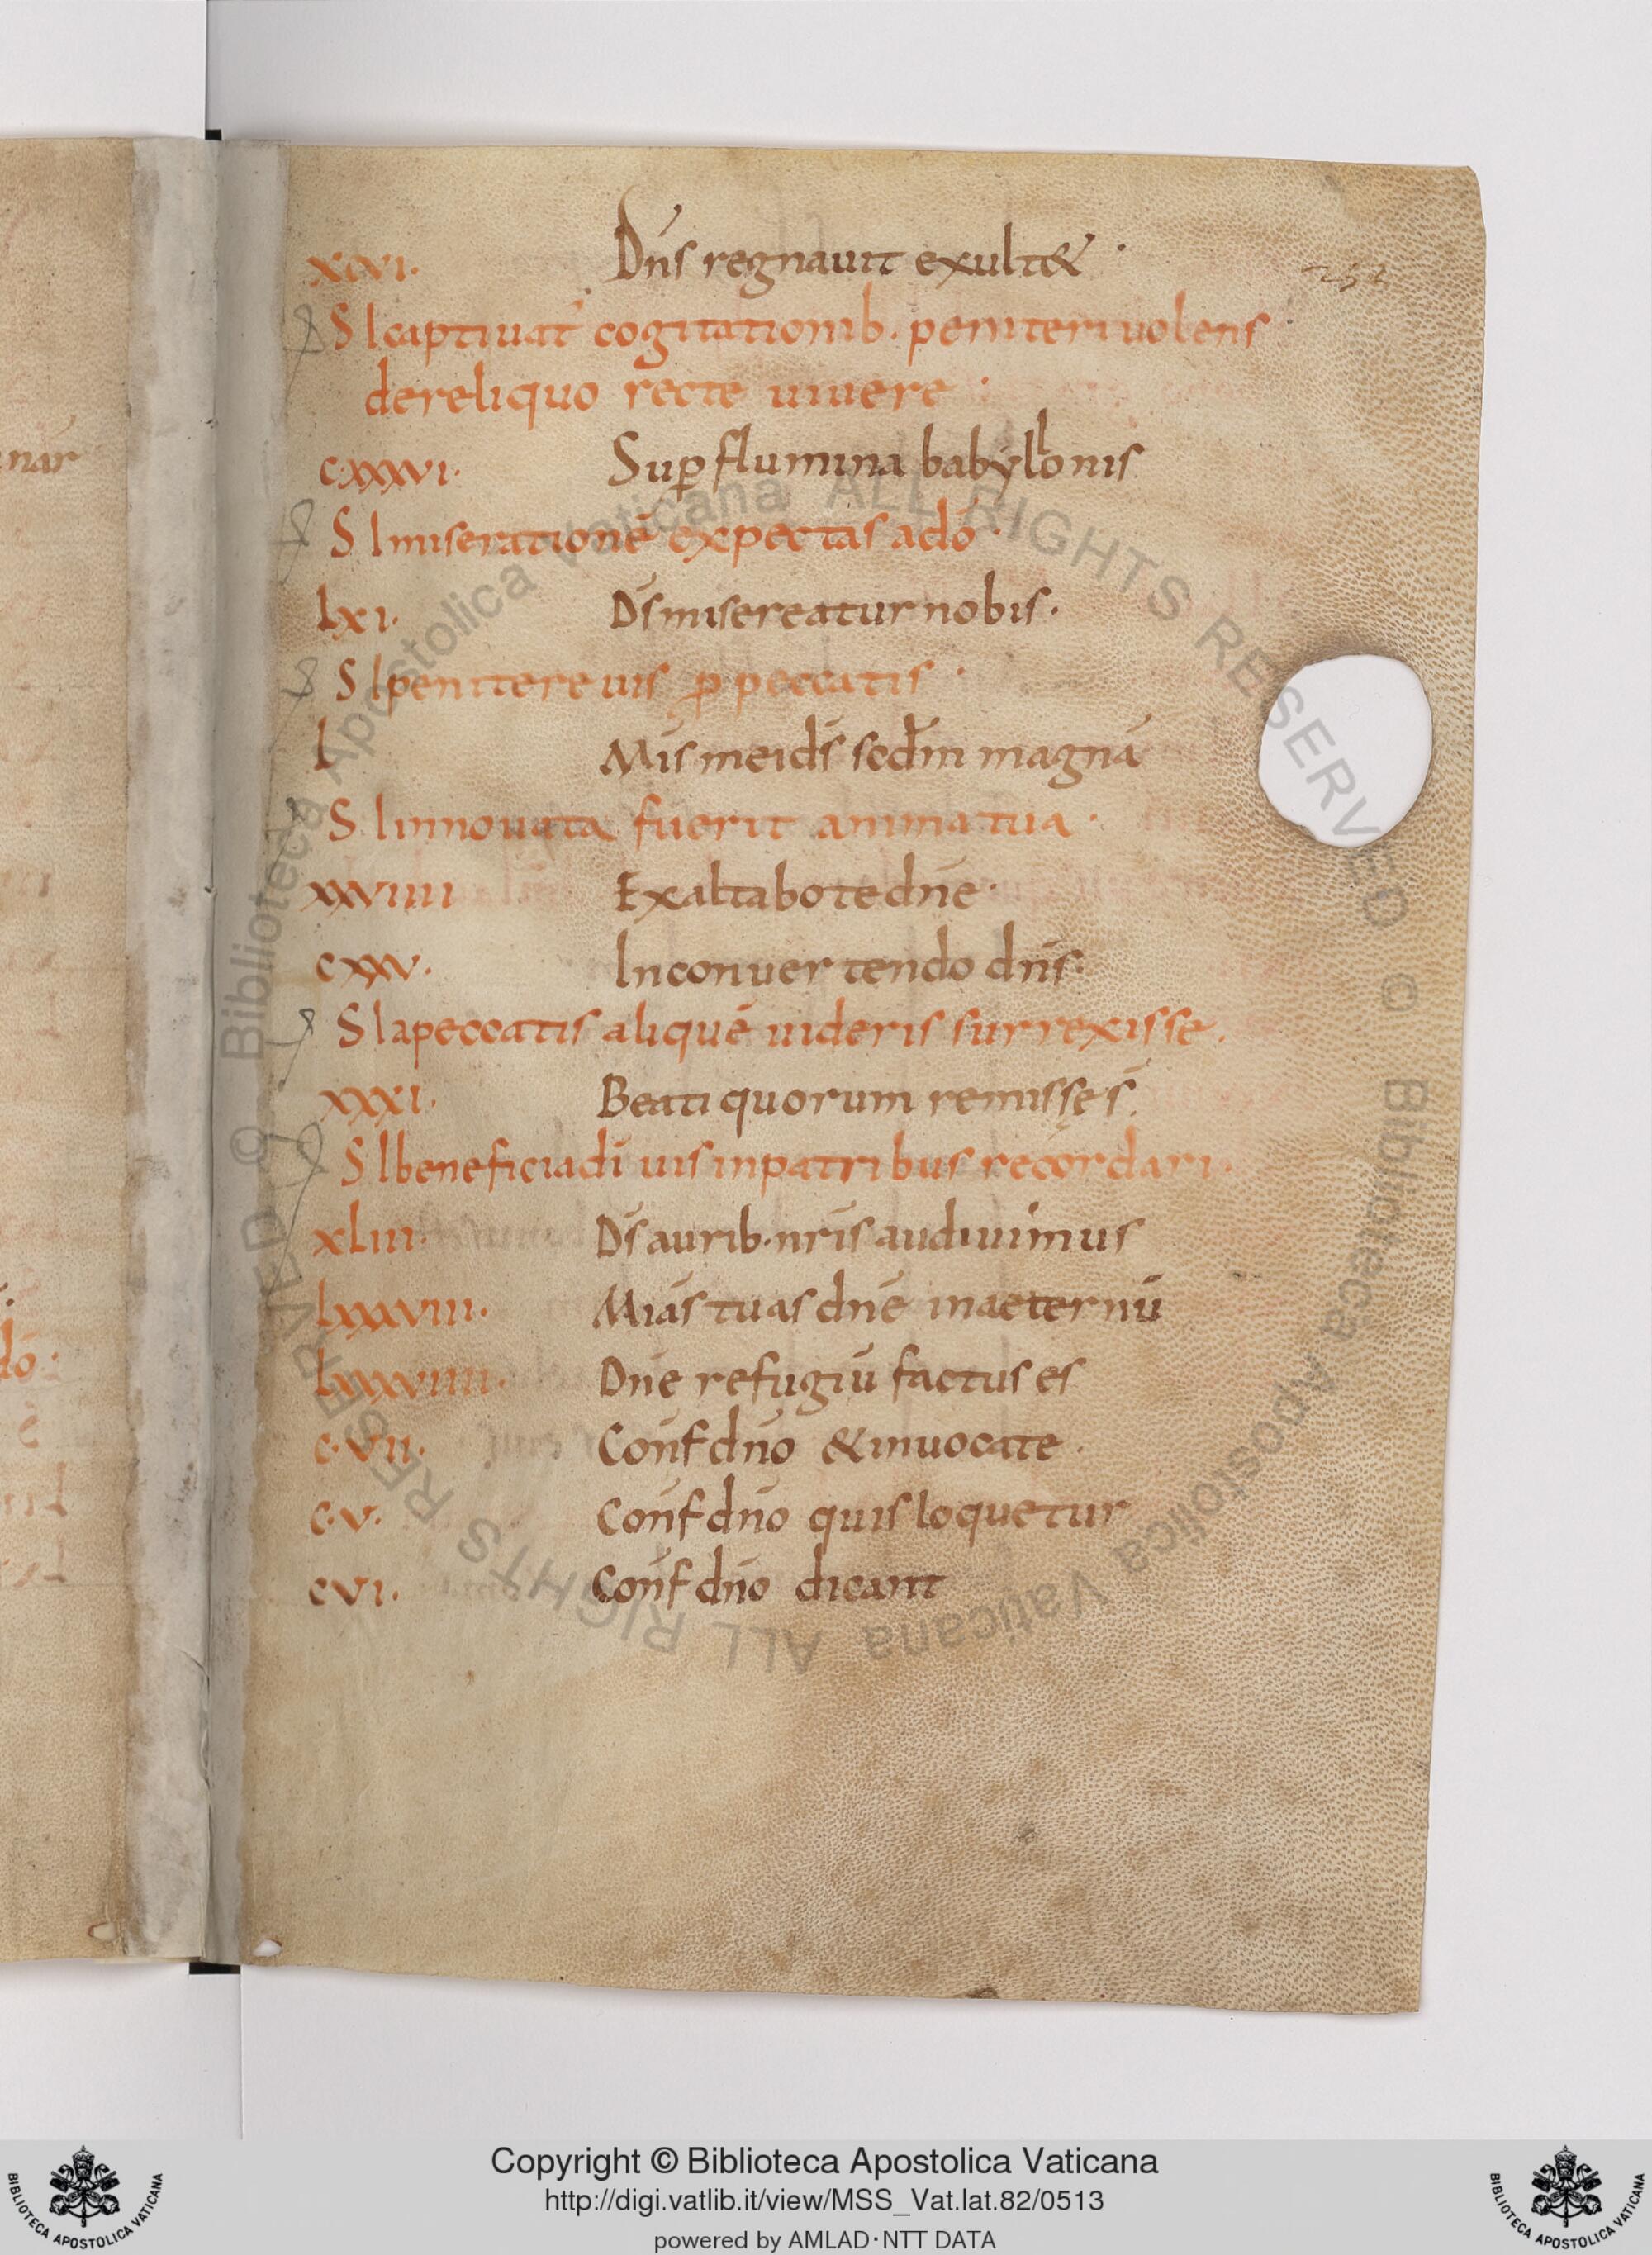 xcvi. Dn̄s regnauit exult& .
251
SI captiuat᷑ cogitationib. peniteri uolens
de reliquo recte uiuere .
cxxxvi. Sup̱ flumina babyllonis
SI miserationē expectas a dō .
lxi. D̄s misereatur nobis.
SI penitere uis ꝓ peccatis .
l Mis mei d̄s scd̄m magnā
SI innouata fuerit anima tua .
xxviiii Exaltabo te dn̄e .
cxxv. In conuertendo dn̄s.
SI a peccatis aliquē uideris surrexisse.
xxxi. Beati quorum remissę s̄.
SI beneficia dī uis in patribus recordari.
xliii. D̄s aurib. nr̄is audiuimus
lxxxviii. Miās tuas dn̄e in aeternū
lxxxviiii. Dn̄e refugiū factus es
c.vii. Conf̄ dn̄o & inuocate .
c.v. Conf̄ dn̄o quis loquetur
cvi. Conf̄ dn̄o dicant
nār
dō :
© Biblioteca Apostolica Vaticana ALL RIGHTS RESERVED © Biblioteca Apostolica Vaticana ALL RIGHTS RESERVED
Copyright © Biblioteca Apostolica Vaticana
http://digi.vatlib.it/view/MSS_Vat.lat.82/0513
powered by AMLAD·NTT DATA
BIBLIOTECA APOSTOLICA VATICANA
BIBLIOTECA APOSTOLICA VATICANA